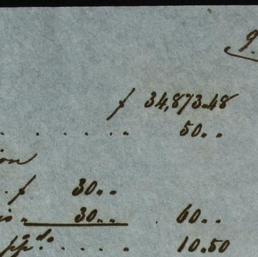 9.
f 34,873.48
. . . . . . 50..
on
. . f 30..
is. 30.. 60..
pp do . . . . . 10.50